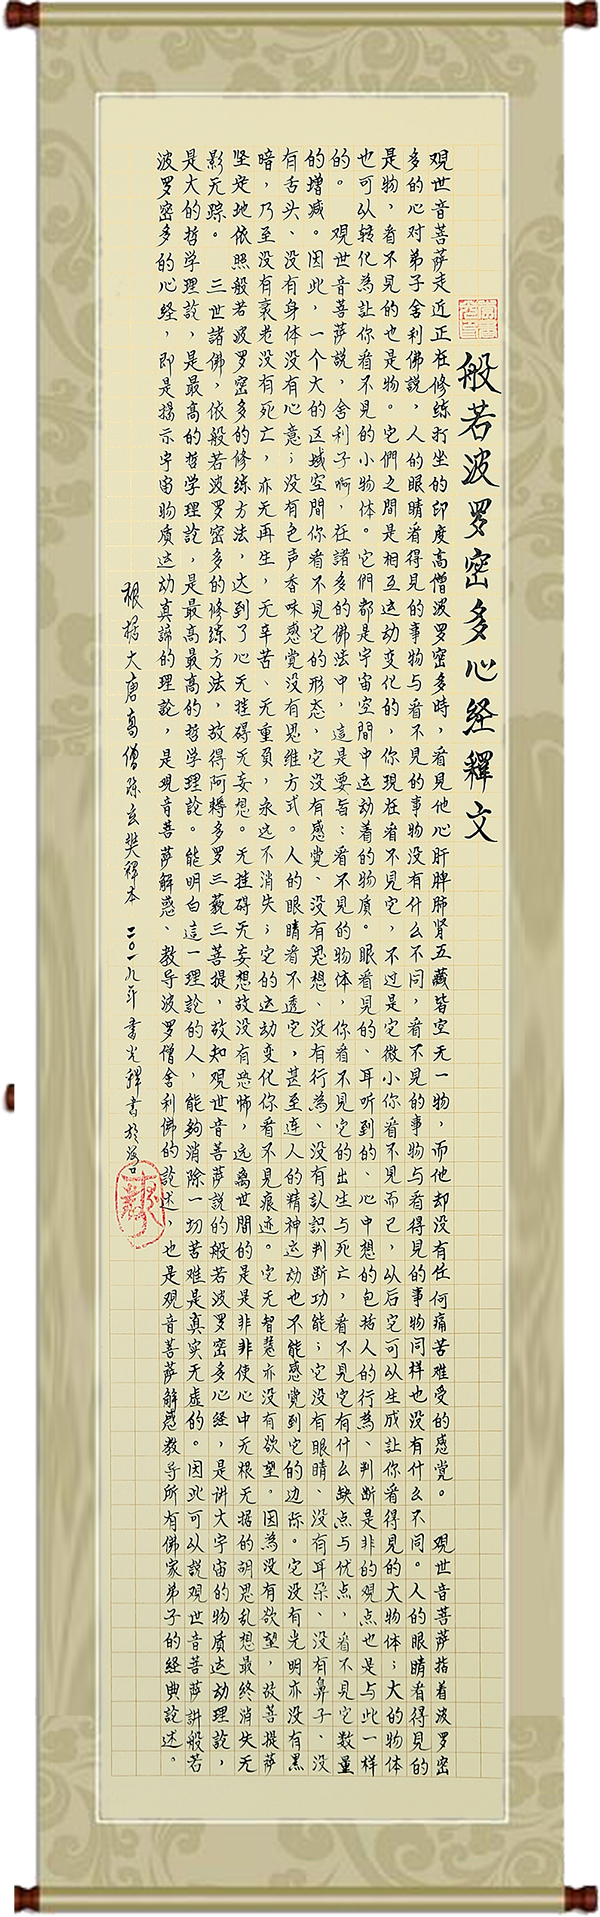 般若波罗密多心经釋文
观世音菩萨走近正在修练打坐的印度高僧波罗密多時，看見他心肝脾肺肾五藏皆空无一物，而他却没有任何痛苦难受的感觉。 观世音菩萨指着波罗密
多的心对弟子舍利佛說，人的眼睛看得見的事物与看不見的事物没有什么不同，看不見的事物与看得見的事物同样也没有什么不同。人的眼睛看得見的
是物，看不見的也是物。它們之間是相互运动变化的，你現在看不見它，不过是它微小你看不見而已，从后它可从生成让你看得見的大物体；大的物体
也可从转化為让你看不見的小物体。它們都是宇宙空間中运动着的物质。眼看見的、耳听到的、心中想的包括人的行為、判断是非的观点也是与此一样
的。 观世音菩萨說，舍利子啊，在諸多的佛法中，這是要旨：看不見的物体，你看不見它的出生与死亡，看不見它有什么缺点与优点，看不見它数量
的增减。因此，一个大的区域空間你看不見它的形态，它没有感觉、没有思想、没有行為、没有認识判断功能；它没有眼睛、没有耳朵、没有鼻子、没
有舌头、没有身体没有心意；没有色声香味感觉没有思维方式。人的眼睛看不透它，甚至连人的精神运动也不能感觉到它的边际。它没有光明亦没有黑
暗，乃至没有衰老没有死亡，亦无再生，无辛苦、无重負，永远不消失；它的运动变化你看不見痕迹。它无智慧亦没有欲望。因為没有欲望，故菩提萨
坚定地依照般若波罗密多的修练方法，达到了心无挂碍无妄想。无挂碍无妄想故没有恐怖，远离世間的是是非非使心中无根无据的胡思乱想最终消失无
影无踪。 三世諸佛，依般若波罗密多的修练方法，故得阿耨多罗三藐三菩提，故知观世音菩萨說的般若波罗密多心经，是讲大宇宙的物质运动理論，
是大的哲学理論，是最高的哲学理論，是最高最高的哲学理論。能明白這一理論的人，能夠消除一切苦难是真实无虚的。因此可从說观世音菩萨讲般若
波罗密多的心经，即是揭示宇宙物质运动真諦的理論，是观音菩萨解惑、教导波罗僧舍利佛的論述，也是观音菩萨解惑教导所有佛家弟子的经典論述。
根据大唐高僧陈玄奘释本 二〇一九年 書光釋書於